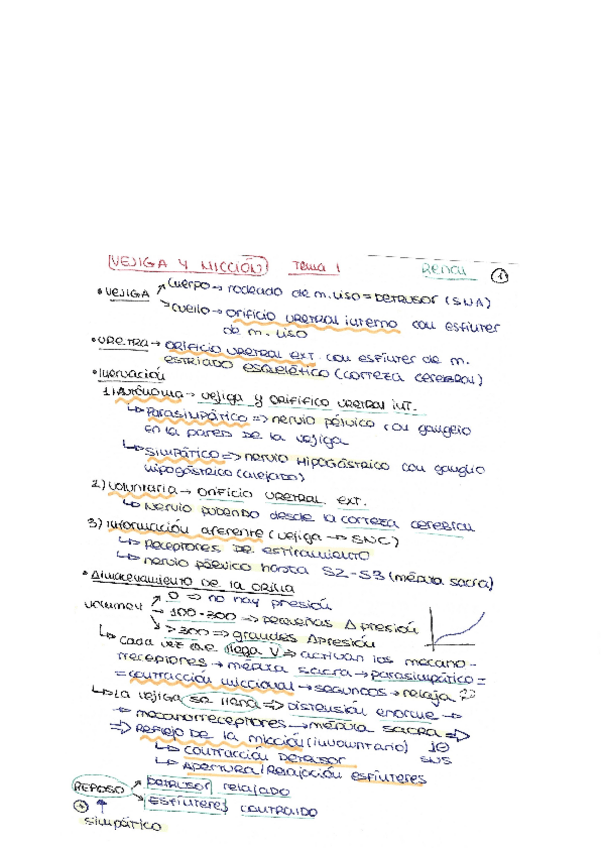 VEJIGA Y MICCIÓN Tema 1 RENAL 1
• VEJIGA → Cuerpo → rodeado de m. liso = DETRUSOR (SNA)
→ Cuello → ORIFICIO URETRAL interno con esfínter
de m. liso
• URETRA → ORIFICIO URETRAL EXT. con esfínter de m.
estriado esquelético (corteza cerebral)
• Inervación
1) Autónoma → vejiga y ORIFIFICO URETRAL INT.
↳ Parasimpático => nervio pélvico con ganglio
en la pared de la vejiga
↳ Simpático => nervio HIPOGÁSTRICO con ganglio
hipogástrico (alejado)
2) Voluntaria → ORIFICIO URETRAL EXT.
↳ Nervio pudendo desde la corteza cerebral
3) Información aferente (vejiga → SNC)
↳ Receptores DE estiramiento
↳ nervio pélvico hasta S2-S3 (médula sacra)
• Almacenamiento DE LA ORINA
volumen → 0 => no hay presión
→ 100-300 => pequeñas Δ presión
→ >300 => grandes Δpresión
↳ Cada vez que llega V => activan los mecano-
rreceptores → médula sacra → parasimpático =
= contracción miccional → segundos → relaja
↳ La vejiga se llena => DISTENSIÓN enorme →
→ mecanorreceptores → médula sacra =>
=> REFLEJO DE la micción (involuntario)
SNS
↳ CONTRACCIÓN DETRUSOR
↳ APERTURA/Relajación ESFÍNTERES
REPOSO → DETRUSOR relajado
→ ESFÍNTERES contraido
↑
simpático